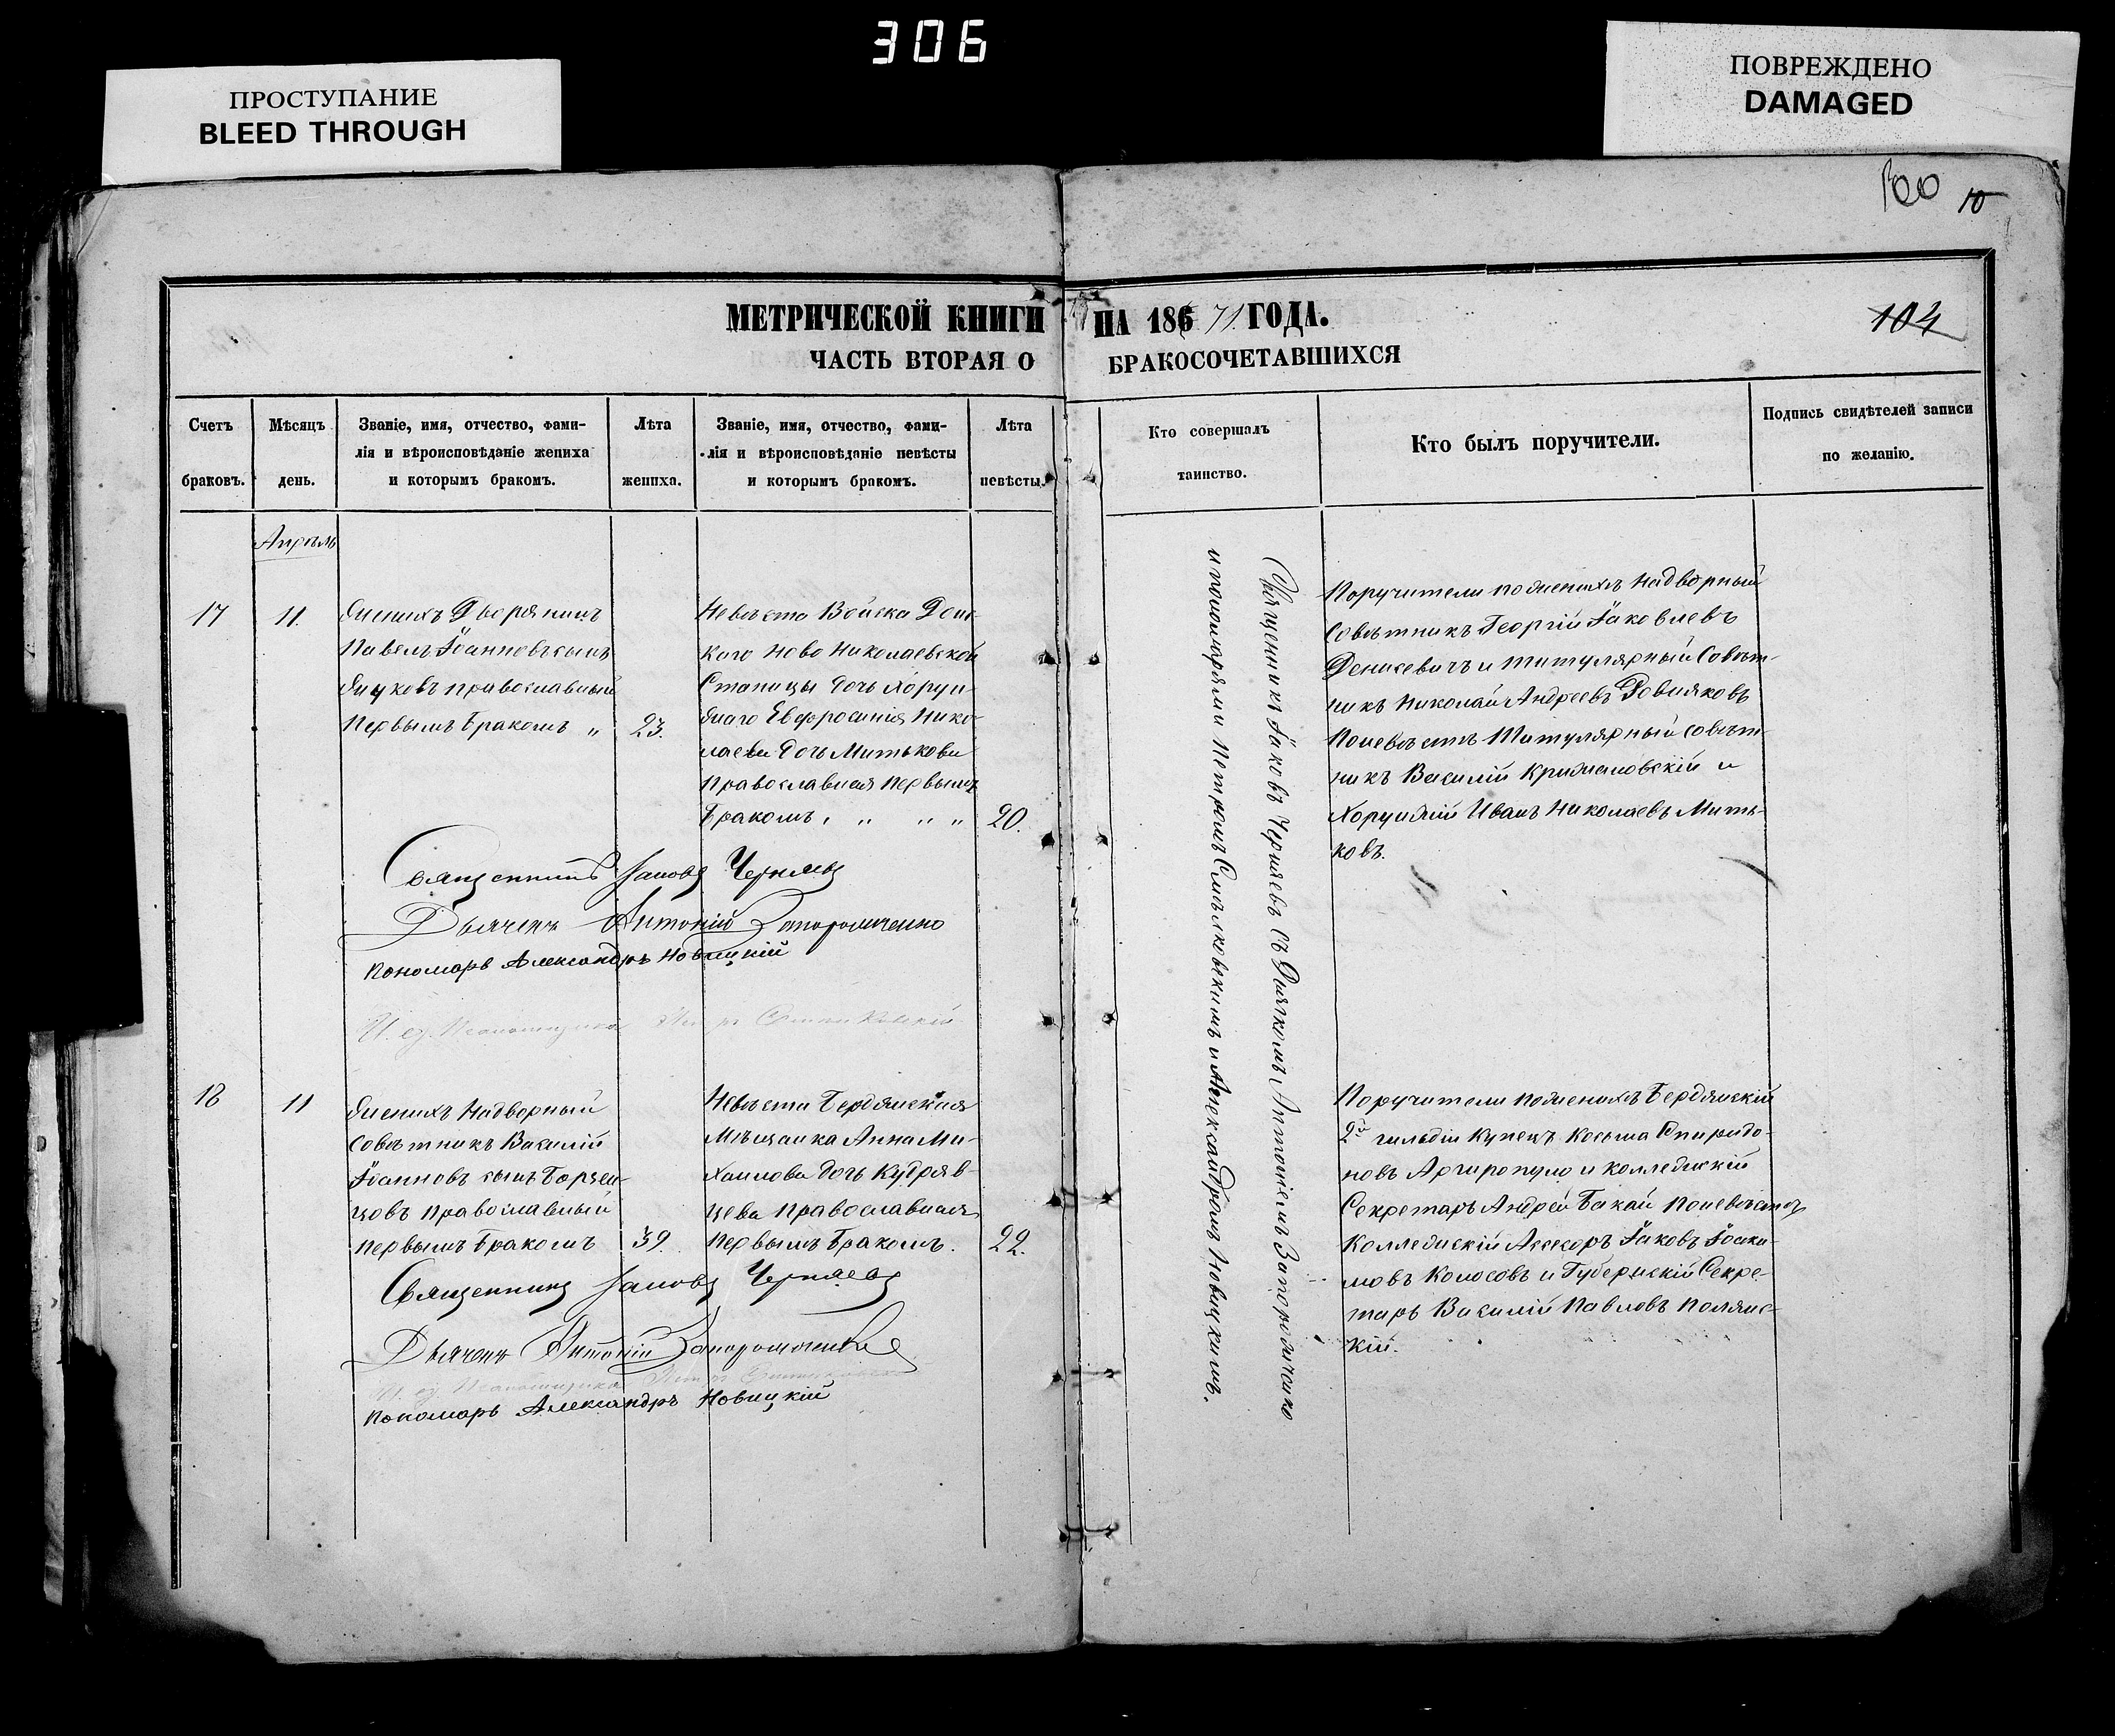 306
ПРОСТУПАНИЕ
BLEED THROUGH
ПОВРЕЖДЕНО
DAMAGED
100 10
МЕТРИЧЕСКОЙ КНИГИ НА 186 71 ГОДА.
104
ЧАСТЬ ВТОРАЯ О БРАКОСОЧЕТАВШИХСЯ
Счетъ
браковъ.
Мѣсяцъ
день.
Званіе, имя, отчество, фами-
лія и вѣроисповѣданіе жениха
и которымъ бракомъ.
Лѣта
жениха.
Званіе, имя, отчество, фами-
лія и вѣроисповѣданіе невѣсты
и которымъ бракомъ.
Лѣта
невѣсты.
Кто совершалъ
таинство.
Кто былъ поручители.
Подпись свидѣтелей записи
по желанію.
Апрѣль
17
11.
Женихъ Дворянинъ
Павелъ Іоанновъ сынъ
православный
Первымъ бракомъ „
23.
Невѣста Войска Дон-
скаго Ново Николаевской
Станицы дочь Хорун-
жаго Евфросинія Нико-
лаева дочь Митькова
Православная Первымъ
бракомъ „ „ „
20.
Священникъ Іаковъ Черняевъ
Дьячекъ Антоній Запорожченко
Пономарь Александръ Новицкій
И. д. Псаломщика Петръ
18
11
Женихъ Надворный
Совѣтникъ Василій
Іоанновъ сынъ Борзен-
цовъ православный
первымъ бракомъ
39.
Невѣста Бердянская
Мѣщанка Анна Ми-
хаилова дочь Кудряв-
цева Православная
первымъ бракомъ.
22.
Священникъ Іаковъ Черняевъ
Дьячекъ Антоній Запорожченко
И. д. Псаломщика Петръ
Пономарь Александръ Новицкій
Священникъ Іаковъ Черняевъ съ Дьячкомъ Антоніемъ Запорожченко
и пономарями Петромъ Смѣлковскимъ и Александромъ Новицкимъ.
Поручители по женихѣ Надворный
Совѣтникъ Георгій Іаковлевъ
Денисевичъ и титулярный Совѣт-
никъ Николай Андреевъ
По невѣстѣ Титулярный совѣт-
никъ Василій Крижановскій и
Хорунжій Иванъ Николаевъ Мить-
ковъ.
Поручители по женихѣ Бердянскій
2й гильдіи купецъ Косьма Спиридо-
новъ Аргиропуло и коллежскій
Секретарь Андрей Бакай По невѣстѣ
Коллежскій Ассесоръ Іаковъ Іоаки-
мовъ Колосовъ и Губернскій Секре-
тарь Василій Павловъ Полянс-
кій.